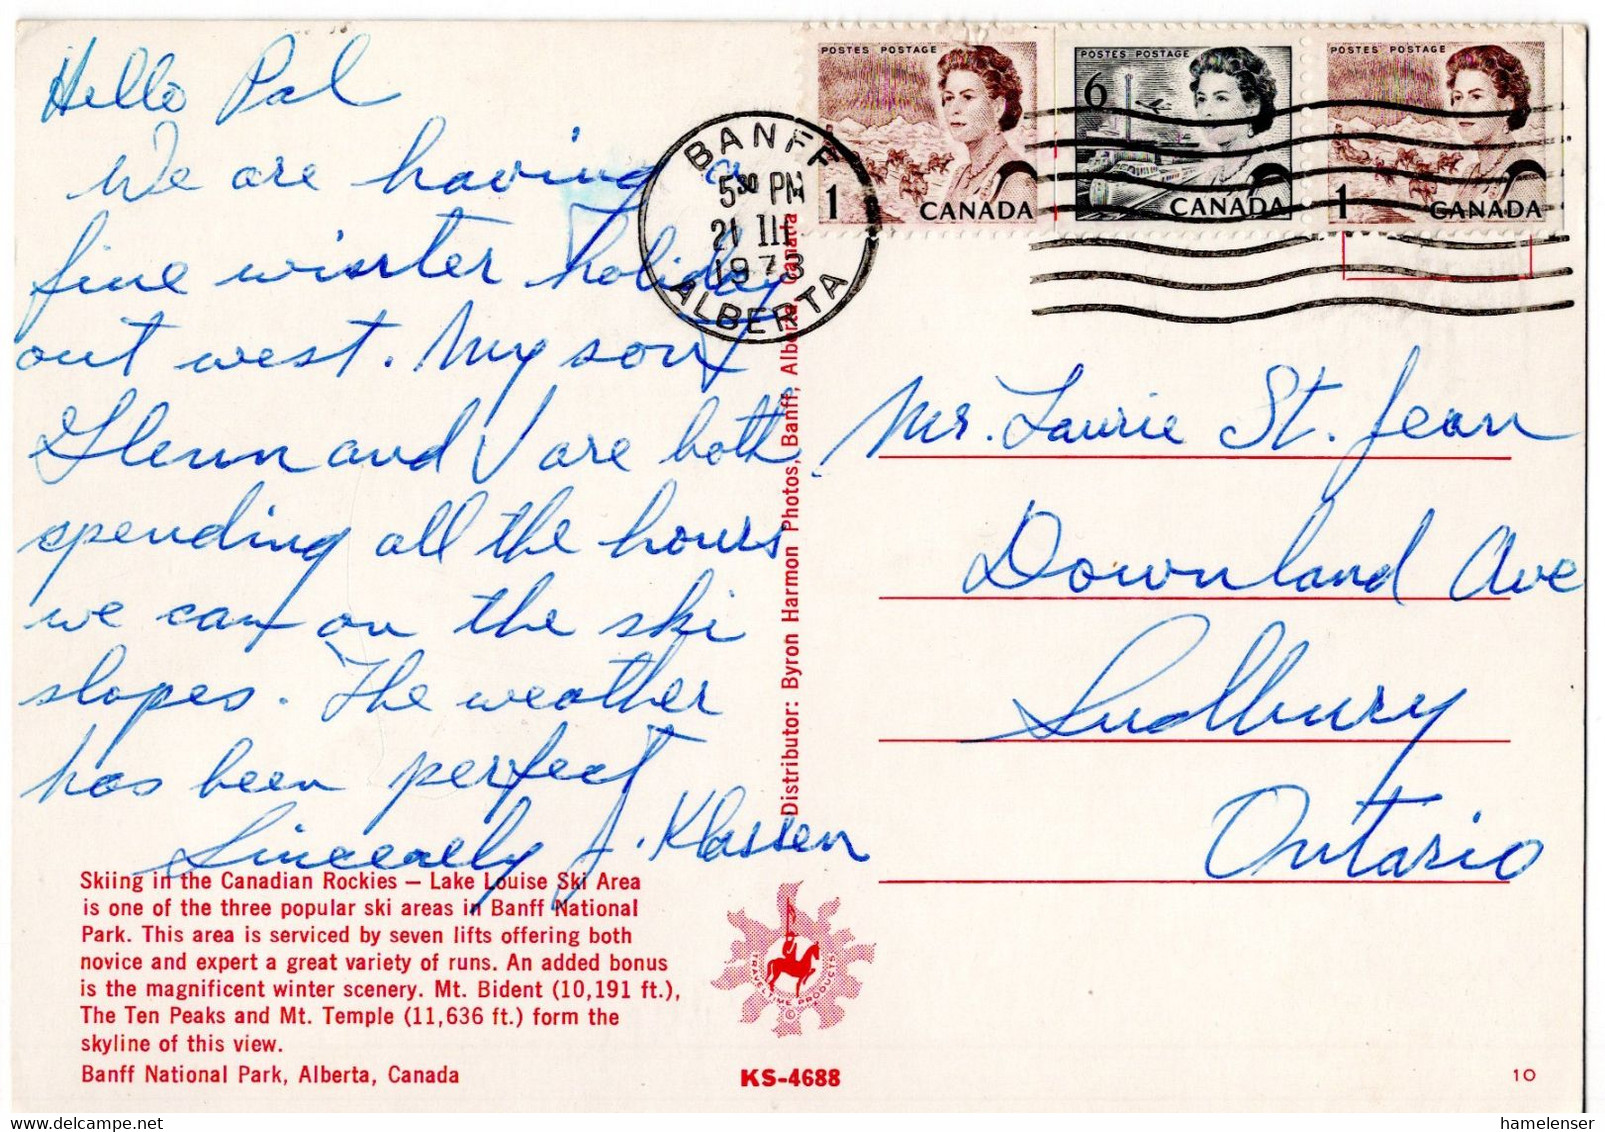 Hello Pal
We are having a
fine winter holiday
out west. My son
Glenn and I are both
spending all the hours
we can on the ski
slopes. The weather
has been perfect
Sincerely J. Klassen
Skiing in the Canadian Rockies — Lake Louise Ski Area
is one of the three popular ski areas in Banff National
Park. This area is serviced by seven lifts offering both
novice and expert a great variety of runs. An added bonus
is the magnificent winter scenery. Mt. Bident (10,191 ft.),
The Ten Peaks and Mt. Temple (11,636 ft.) form the
skyline of this view.
Banff National Park, Alberta, Canada
Distributor: Byron Harmon Photos, Banff, Alberta, Canada
TRAVELTIME PRODUCTS
©
KS-4688
BANFF
5 30 PM
21 III
1973
ALBERTA
POSTES POSTAGE
1 CANADA
POSTES POSTAGE
6
CANADA
POSTES POSTAGE
1 CANADA
Mr. Laurie St. Jean
Downland Ave
Sudbury
Ontario
10
hamelenser